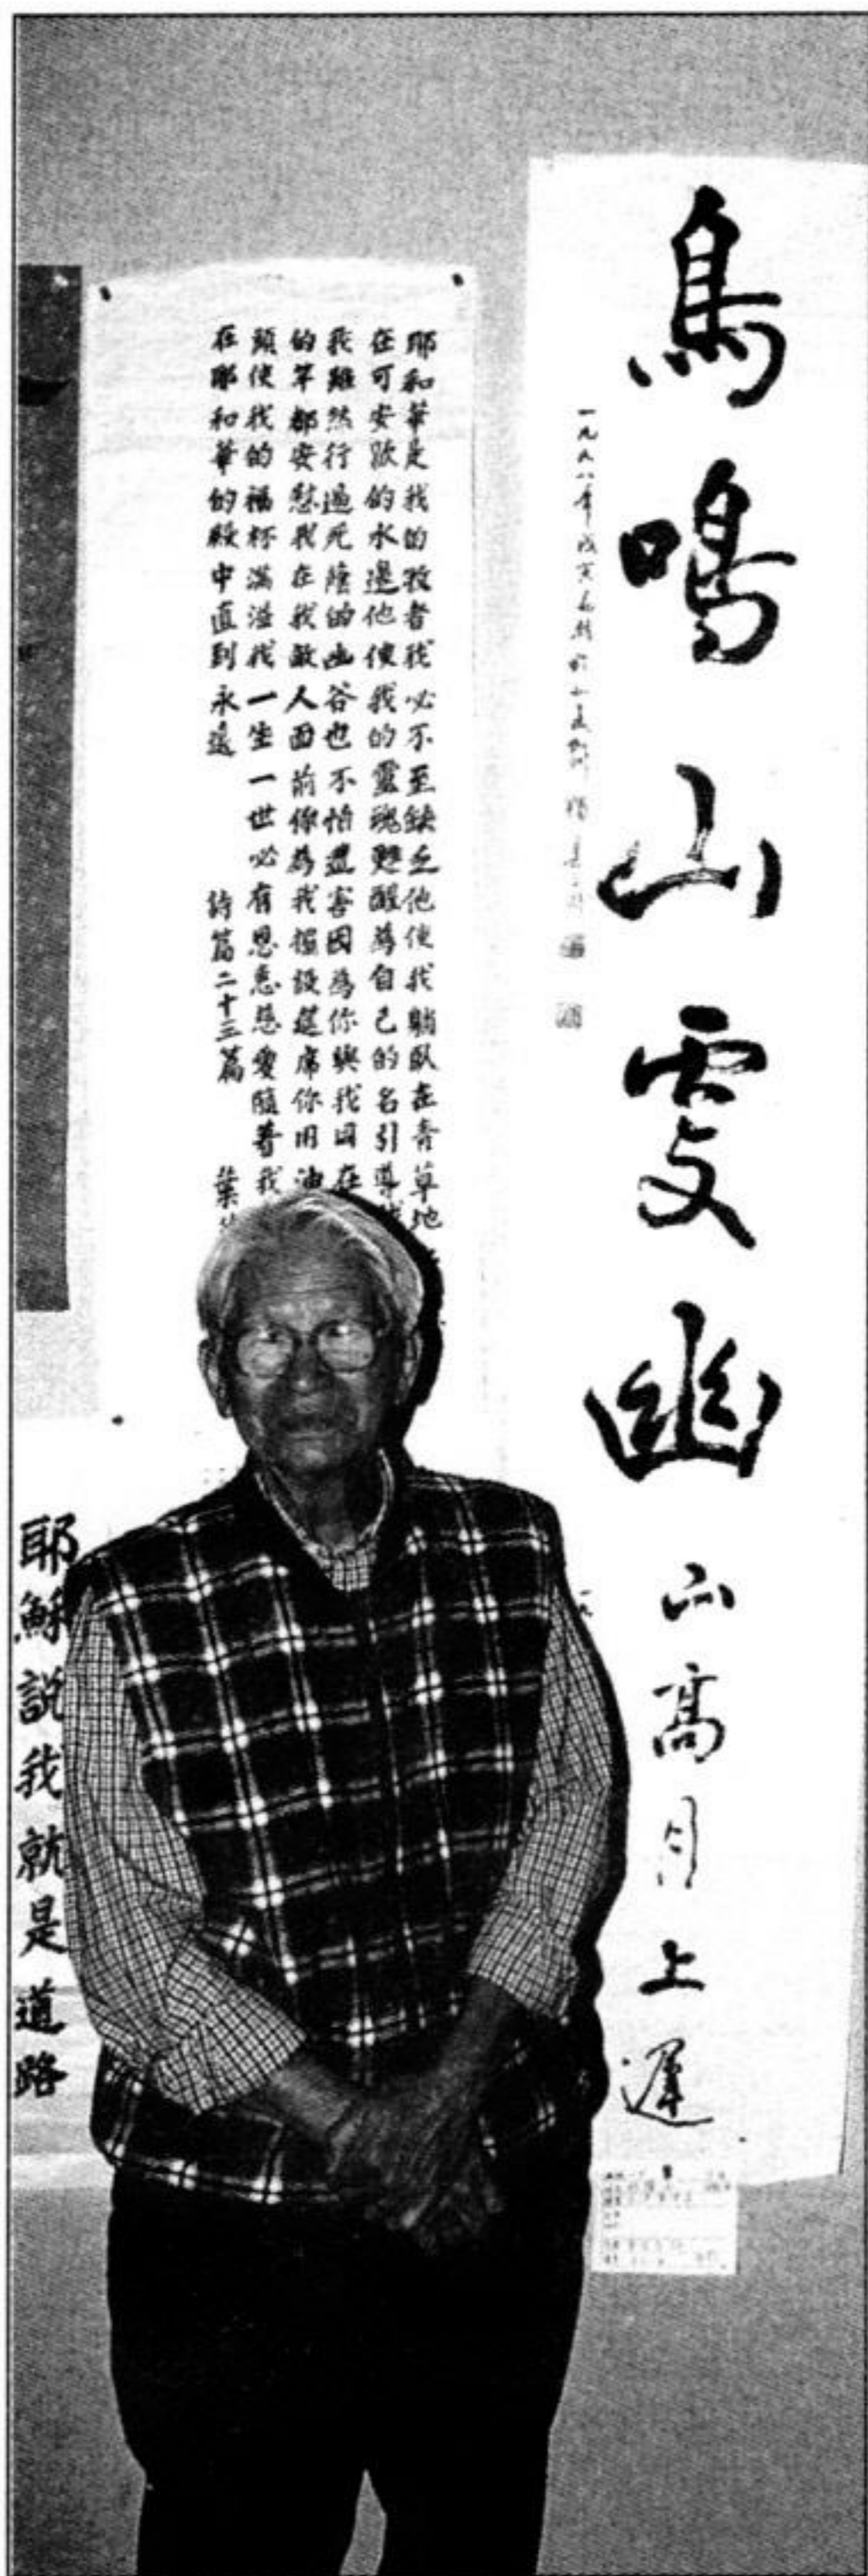 鳥鳴山更幽
山高月上遲
一九九八年戊寅
耶和華是我的牧者我必不至缺乏他使我躺臥在青草地
在可安歇的水邊他使我的靈魂甦醒為自己的名引導我
我雖然行過死蔭的幽谷也不怕遭害因為你與我同在
的竿都安慰我在我敵人面前你為我擺設筵席你用油
頭使我的福杯滿溢我一生一世必有恩惠慈愛隨著我
在耶和華的殿中直到永遠 詩篇二十三篇 葉
耶穌說我就是道路